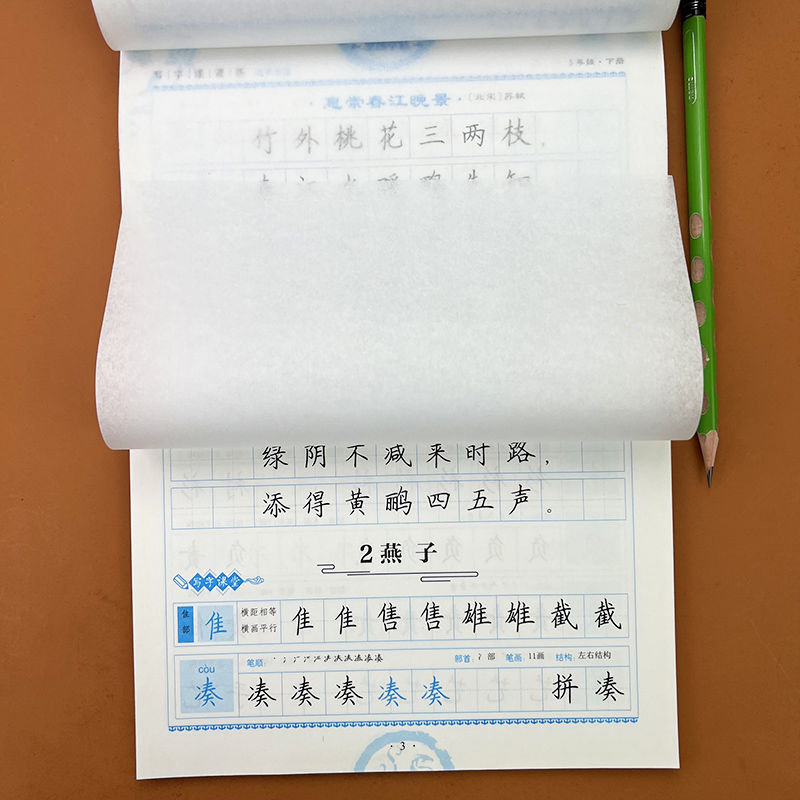 3年级·下册
惠崇春江晚景·(北宋)苏轼
竹外桃花三两枝，
绿阴不减来时路，
添得黄鹂四五声。
2 燕子
写字课堂
隹部 隹 横距相等 横画平行 隹 隹 售 售 雄 雄 截 截
còu 笔顺： 部首：冫部 笔画：11画 结构：左右结构
凑 凑 凑 凑 凑 凑 拼 凑
· 3 ·